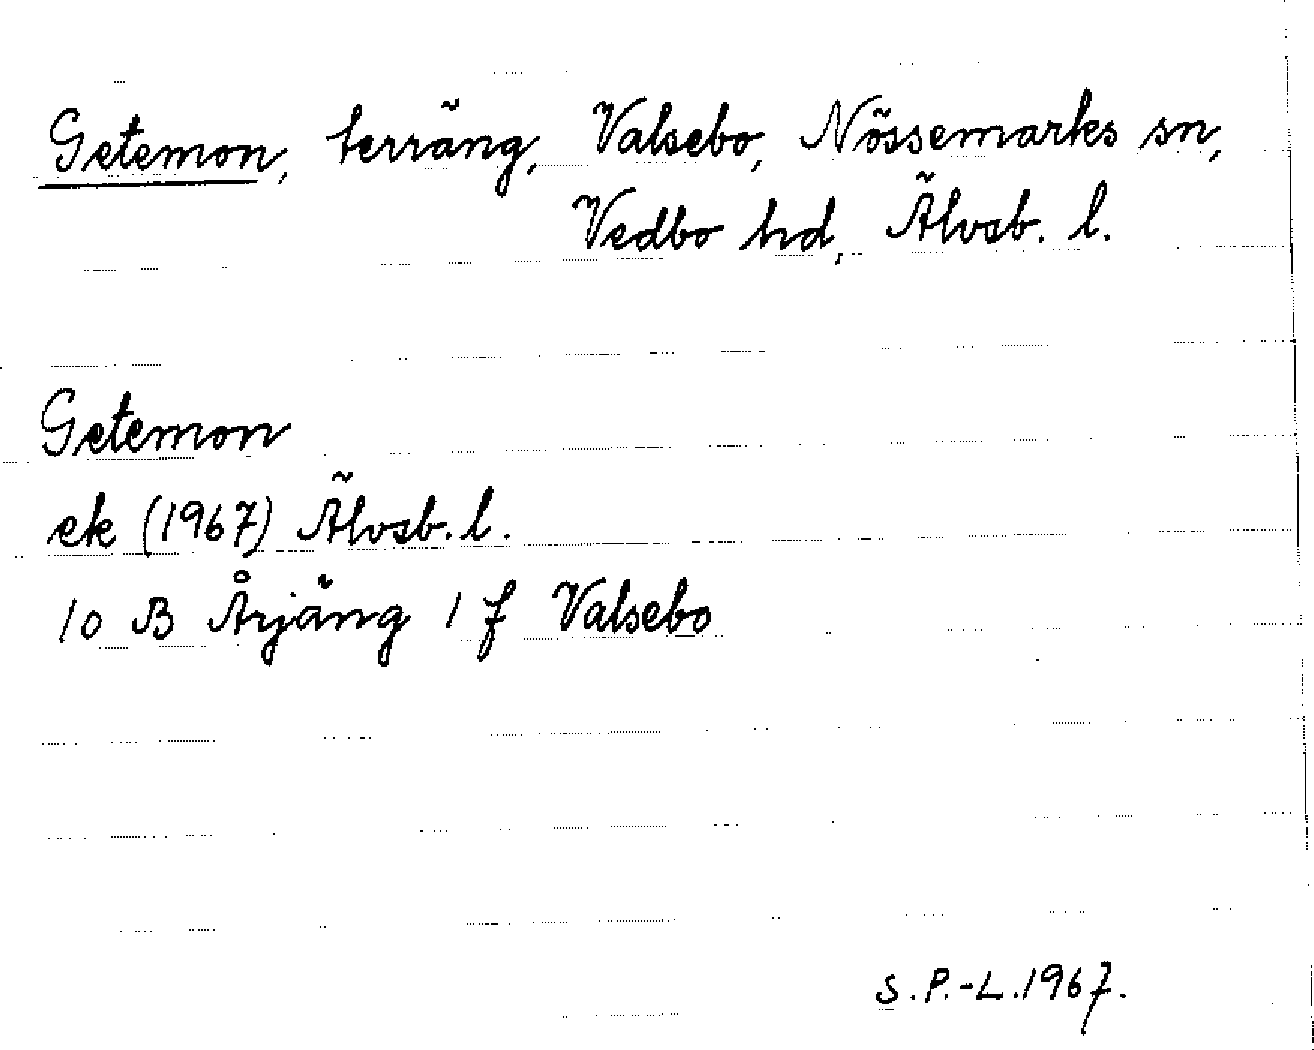 Getemon, terräng, Valsebo, Nössemarks sn,
Vedbo hd, Älvsb. l.
Getemon
ek (1967) Älvsb. l.
10 B Årjäng 1 f Valsebo
S.P.-L.1967.